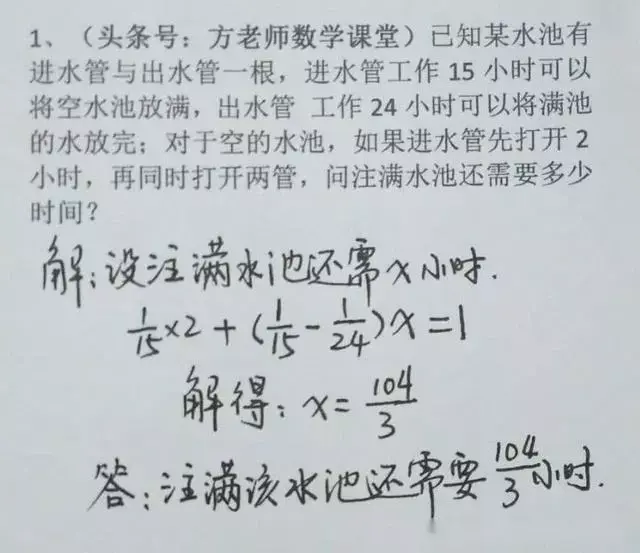 1、（头条号：方老师数学课堂）已知某水池有
进水管与出水管一根，进水管工作 15 小时可以
将空水池放满，出水管 工作 24 小时可以将满池
的水放完；对于空的水池，如果进水管先打开 2
小时，再同时打开两管，问注满水池还需要多少
时间？
解：设注满水池还需x小时.
1/15×2+(1/15-1/24)x=1
解得：x=104/3
答：注满该水池还需要104/3小时.